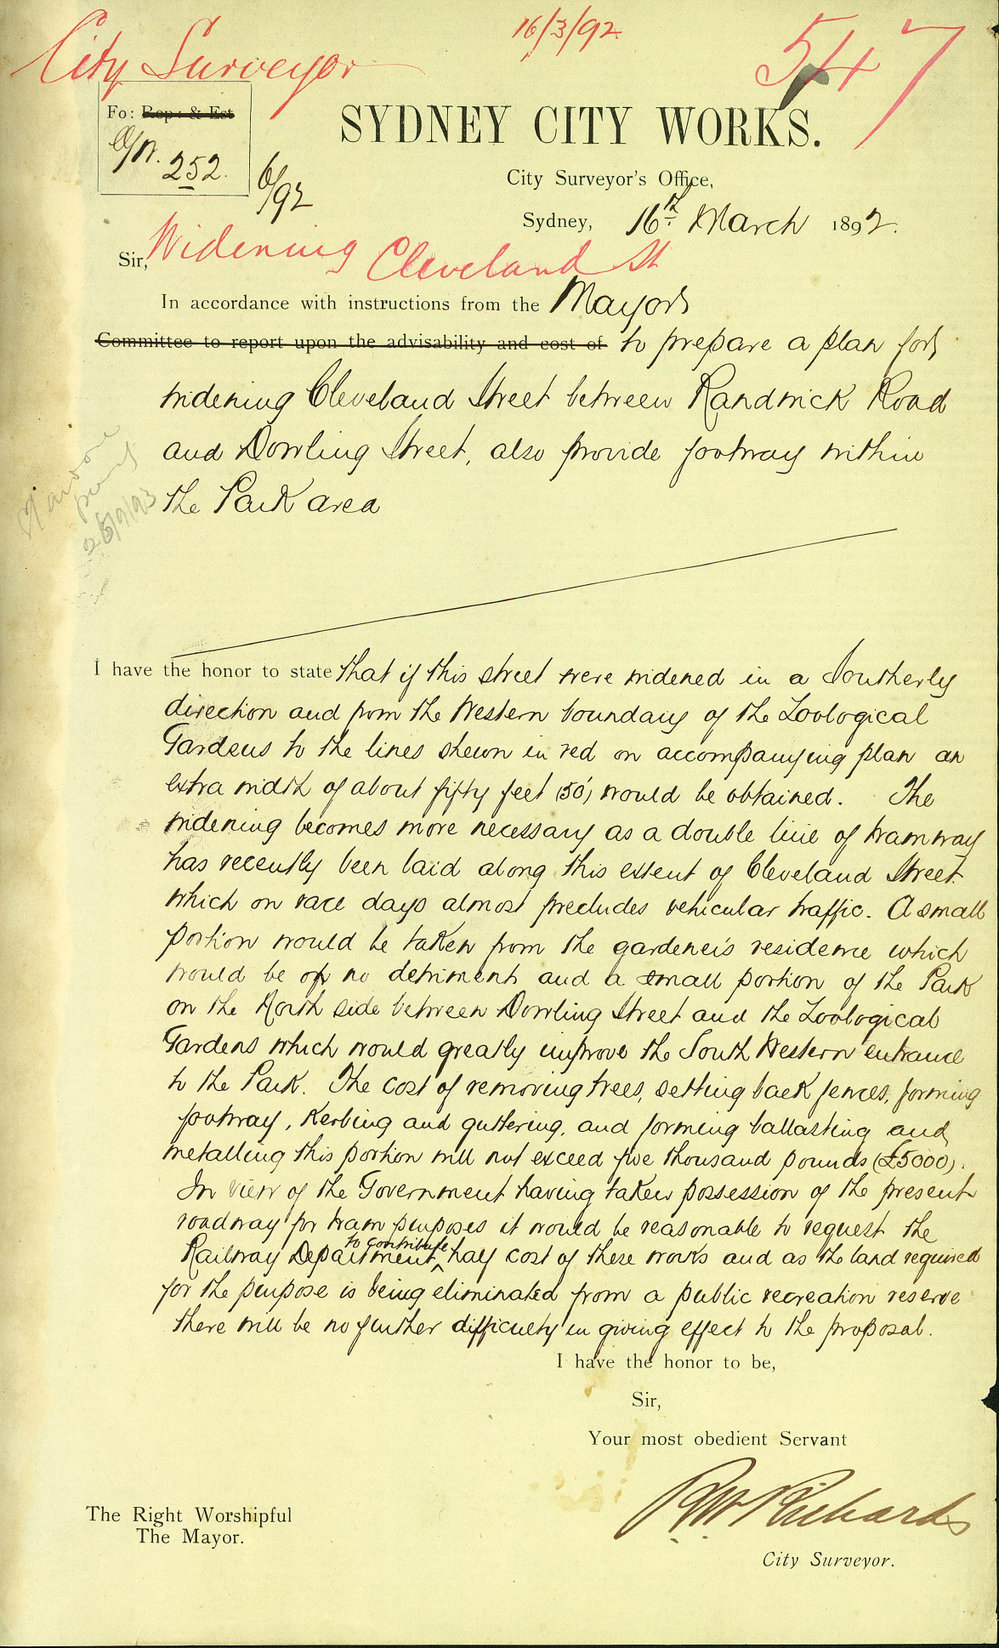 City Surveyor
16/3/92
547
Fo: Rep: & Est
252.
6/92
SYDNEY CITY WORKS.
City Surveyor's Office,
Sydney, 16th March 1892.
Widening Cleveland St
Sir,
In accordance with instructions from the Mayor
Committee to report upon the advisability and cost of to prepare a plan for
widening Cleveland Street between Randwick Road
and Dowling Street, also provide footway within
the Park area
25/9/93
I have the honor to state that if this street were widened in a Southerly
direction and from the Western boundary of the Zoological
Gardens to the lines shewn in red on accompanying plan an
extra width of about fifty feet (50') would be obtained. The
widening becomes more necessary as a double line of tramway
has recently been laid along this extent of Cleveland Street
which on race days almost precludes vehicular traffic. A small
portion would be taken from the gardener's residence which
would be of no detriment and a small portion of the Park
on the North side between Dowling Street and the Zoological
Gardens which would greatly improve the South Western entrance
to the Park. The cost of removing trees, setting back fences, forming
footway, kerbing and guttering, and forming ballasting and
metalling this portion will not exceed five thousand pounds (£5000).
In view of the Government having taken possession of the present
roadway for tram purposes it would be reasonable to request the
Railway Department to contribute half cost of these works and as the land required
for the purpose is being eliminated from a public recreation reserve
there will be no further difficulty in giving effect to the proposal.
I have the honor to be,
Sir,
Your most obedient Servant
R W Richards
The Right Worshipful
The Mayor.
City Surveyor.